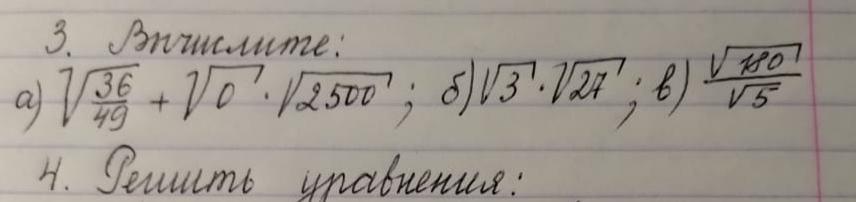 3. Вычислите:
а) √(36/49) + √0 · √2500 ; б) √3 · √27 ; в) √180/√5
4. Решить уравнения: